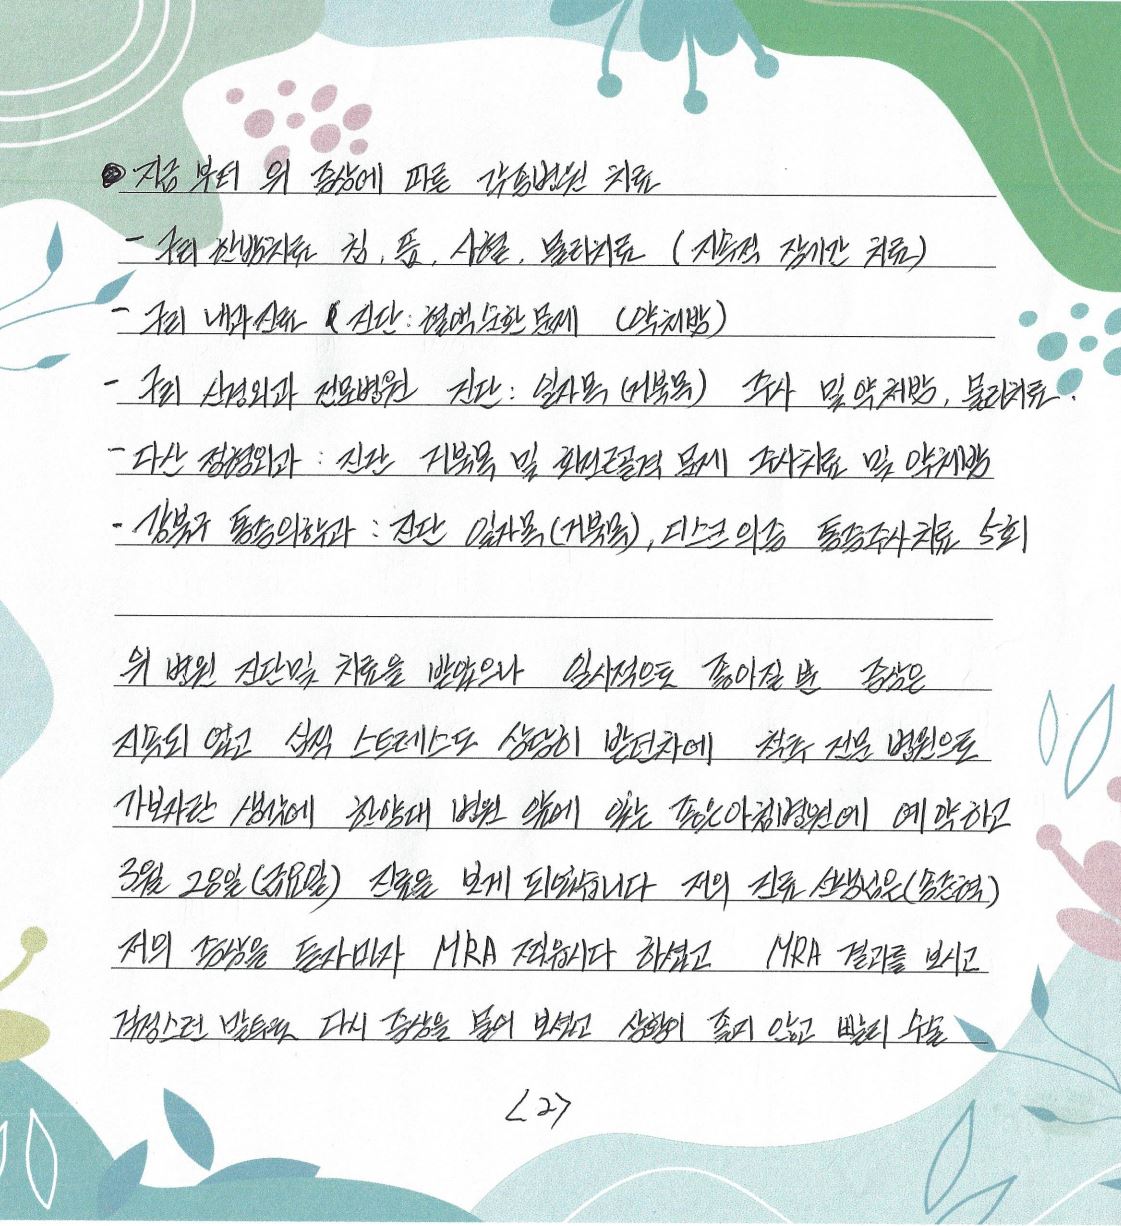 ● 지금 부터 위 증상에 따른 각종병원 치료
- 구리 한방치료 침, 뜸, 사혈, 물리치료 (지속적 장기간 치료)
- 구리 내과진료 ( 진단: 혈액순환 문제 (약처방)
- 구리 신경외과 전문병원 진단: 일자목 (거북목) 주사 및 약처방, 물리치료.
- 다산 정형외과 : 진단 거북목 및 회전근골격 문제 주사치료 및 약처방
- 강북구 통증의학과 : 진단 일자목(거북목), 디스크 의증 통증주사치료 5회
위 병원 진단및 치료을 받았으나 일시적으로 좋아질 뿐 증상은
지속되 었고 심적 스트레스도 상당히 받던차에 척추 전문 병원으로
가보자란 생각에 한양대 병원 앞에 있는 좋은아침병원에 예약하고
3월 28일(금요일) 진료을 보게 되었습니다 저의 진료 선생님은
저의 증상을 듣자마자 MRA 찍읍시다 하셨고 MRA 결과를 보시고
걱정스런 말투로 다시 증상을 물어 보셨고 상황이 좋지 않고 빨리 수술
<2>